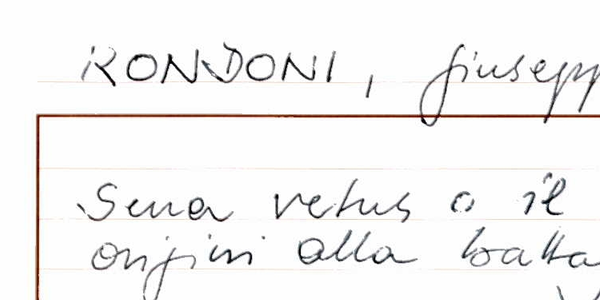 RONDONI, Giusepp
Sena vetus o il
origini alla batta